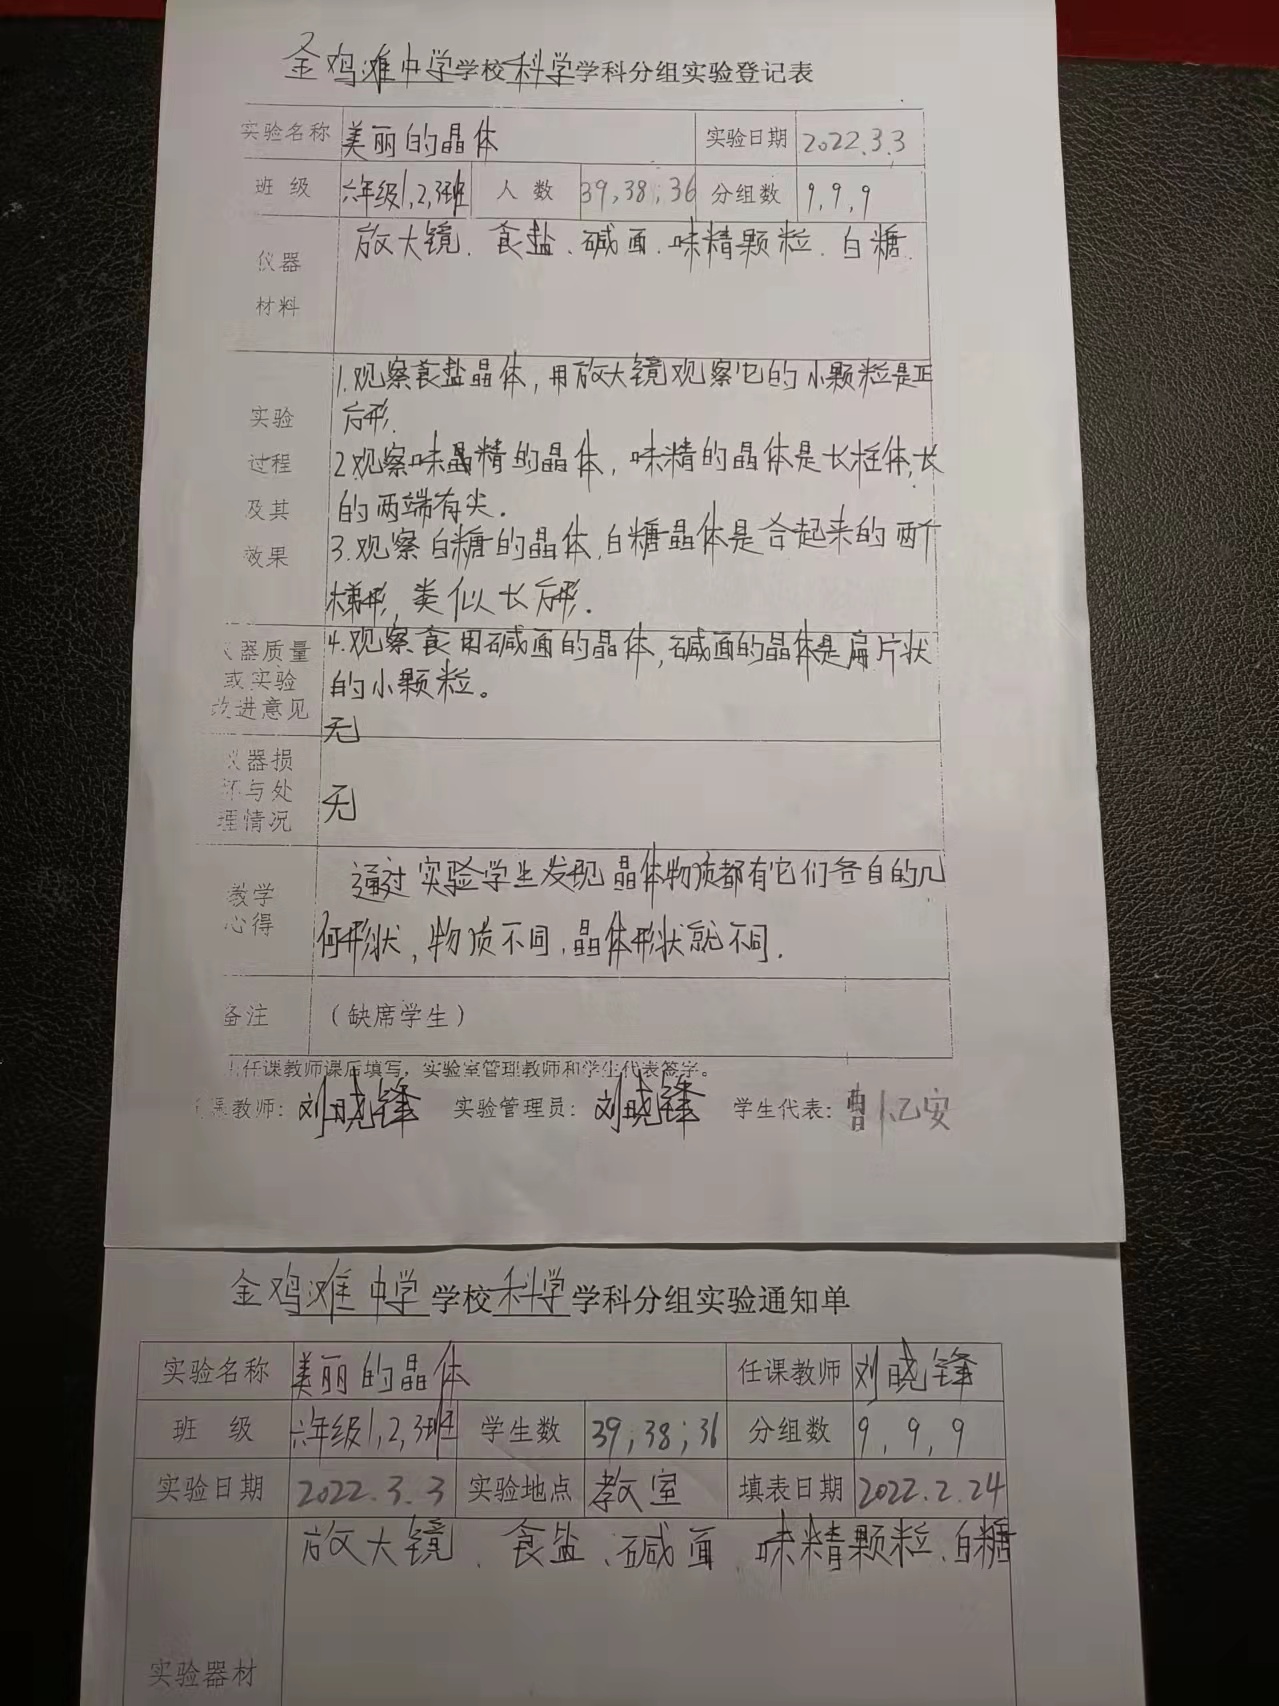 金鸡滩中学学校科学学科分组实验登记表
实验名称 美丽的晶体 实验日期 2022.3.3
班 级 六年级1,2,3班 人 数 39,38,36 分组数 9,9,9
仪器 放大镜、食盐、碱面、味精颗粒、白糖.
材料
1.观察食盐晶体,用放大镜观察它的小颗粒是正
实验 方形.
过程 2.观察味晶精的晶体,味精的晶体是长柱体,长
及其 的两端有尖.
效果 3.观察白糖的晶体,白糖晶体是合起来的两个
梯形,类似长方形.
器质量 4.观察食用碱面的晶体,碱面的晶体是扁片状
或实验 的小颗粒。
改进意见 无
器损
坏与处 无
理情况
教学 通过实验学生发现晶体物质都有它们各自的几
心得 何形状,物质不同,晶体形状就不同.
备注 (缺席学生)
任课教师课后填写,实验室管理教师和学生代表签字。
课教师: 刘晓锋 实验管理员: 刘晓锋 学生代表: 曹 安
金鸡滩中学学校科学学科分组实验通知单
实验名称 美丽的晶体 任课教师 刘晓锋
班 级 六年级1,2,3班 学生数 39;38;36 分组数 9,9,9
实验日期 2022.3.3 实验地点 教室 填表日期 2022.2.24
放大镜、食盐、碱面、味精颗粒、白糖
实验器材